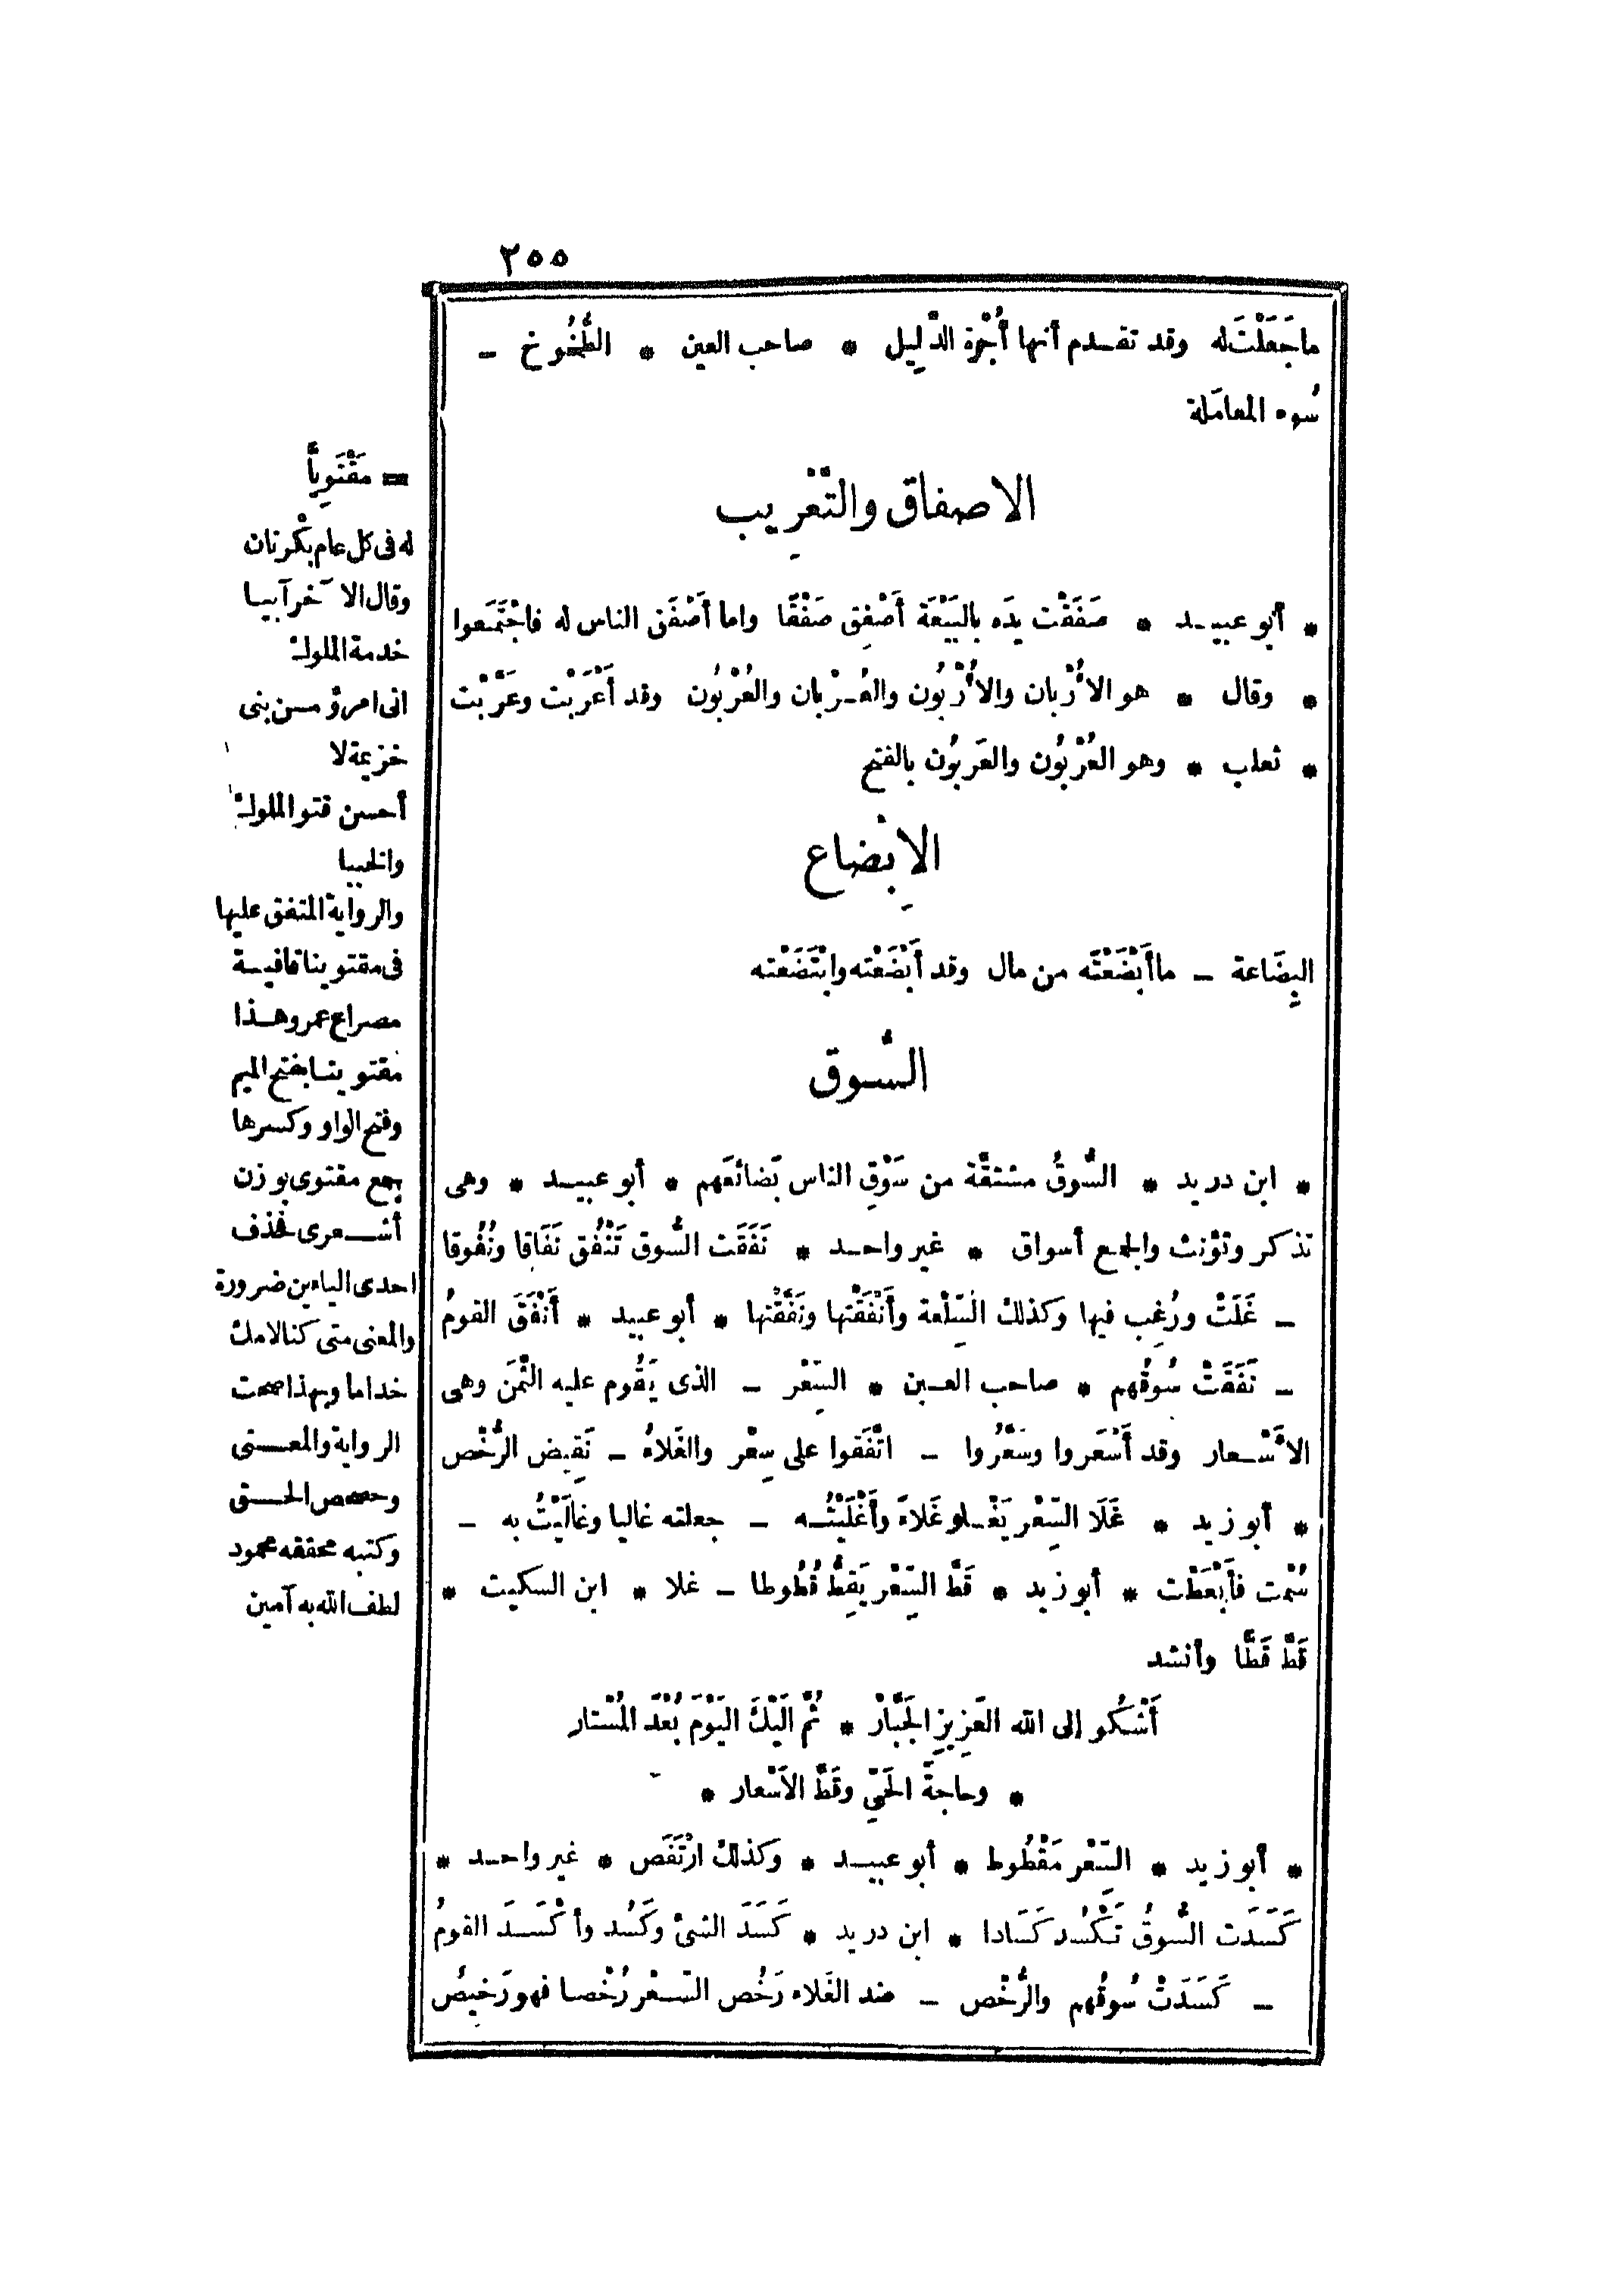 ٢٥٥
ما جَعَلْتَ له وقد تقدم أنها أُجْرة الدَّلِيل * صاحب العين * الطُّخُوخ -
سُوء المعامَلة
الاصفاق والتَّعْرِيب
* أبو عبيد * صَفَقْت يدَه بالبَيْعَة أَصْفِق صَفْقًا واما أَصْفَق الناس له فاجْتَمَعوا
* وقال * هو الأُرْبان والأُرْبُون والعُرْبان والعُرْبُون وقد أَعْرَبْت وعَرَّبْت
* ثعلب * وهو العُرْبُون والعَربُون بالفتح
الابْضاع
البِضَاعة - ما أَبْضَعْتَه من مال وقد أَبْضَعْته وابْتَضَعْته
السُّوق
* ابن دريد * السُّوقُ مشتقَّة من سَوْقِ الناس بَضائعَهم * أبو عبيد * وهى
تذكر وتؤنث والجمع أسواق * غير واحد * نَفَقَت السُّوق تَنْفُق نَفَاقا ونُفُوقا
- غَلَتْ ورُغِب فيها وكذلك السِّلْعة وأَنْفَقْتها ونَفَّقْتها * أبو عبيد * أَنْفَقَ القومُ
- نَفَقَتْ سُوقُهم * صاحب العين * السِّعْر - الذى يَقُوم عليه الثَّمَن وهى
الأَسْعار وقد أَسْعَروا وسَعَّرُوا - اتَّفَقوا على سِعْر والغَلاءُ - نَقِيض الرُّخْص
* أبو زيد * غَلَا السِّعْر يَغْلو غَلاءً وأَغْلَيْتُه - جعلته غاليا وغالَيْتُ به -
سُمْت فأَبْعَطْت * أبو زيد * قَطَّ السِّعْر يَقِطُّ قُطُوطا - غلا * ابن السكيت *
قَطَّ قَطًّا وأنشد
أَشْكُو إلى الله العَزِيزِ الجَبَّارْ * ثُمَّ الَيْكَ اليَوْمَ بُعْدَ المُسْتار
* وحاجةَ الحَيِّ وقَطَّ الأَسْعار *
* أبو زيد * السِّعْر مَقْطُوط * أبو عبيد * وكذلك ارْتَفَص * غير واحد *
كَسَدَت السُّوقُ تَكْسُد كَسَادا * ابن دريد * كَسَدَ الشىُ وكَسُد وأكْسَدَ القومُ
- كَسَدَتْ سُوقُهم والرُّخْص - ضد الغَلاء رَخُص السِّعْر رُخْصا فهو رَخيصٌ
= مَقْتَوِيًا
له فى كل عام بكرتان
وقال الآخر آبيا
خدمة الملوك
انى امرؤ من بنى
خزيمة لا
أحسن قتو الملوك
والخببا
والرواية المتفق عليها
فى مقتوينا قافية
مصراع عمرو هذا
مقتوينا بفتح الميم
وفتح الواو وكسرها
جمع مقتوى بوزن
أشعرى فحذف
احدى الياءين ضرورة
والمعنى متى كنا لامك
خداما وبهذا صحت
الرواية والمعنى
وحصص الحق
وكتبه محققه محمود
لطف الله به آمين